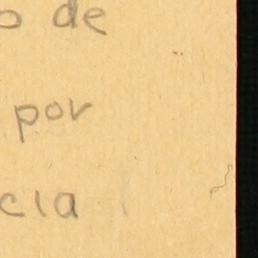 o de
por
cia